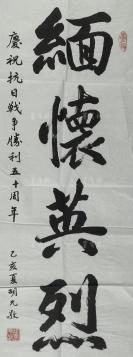 緬懷英烈
慶祝抗日戰爭勝利五十周年
乙亥夏胡九敬